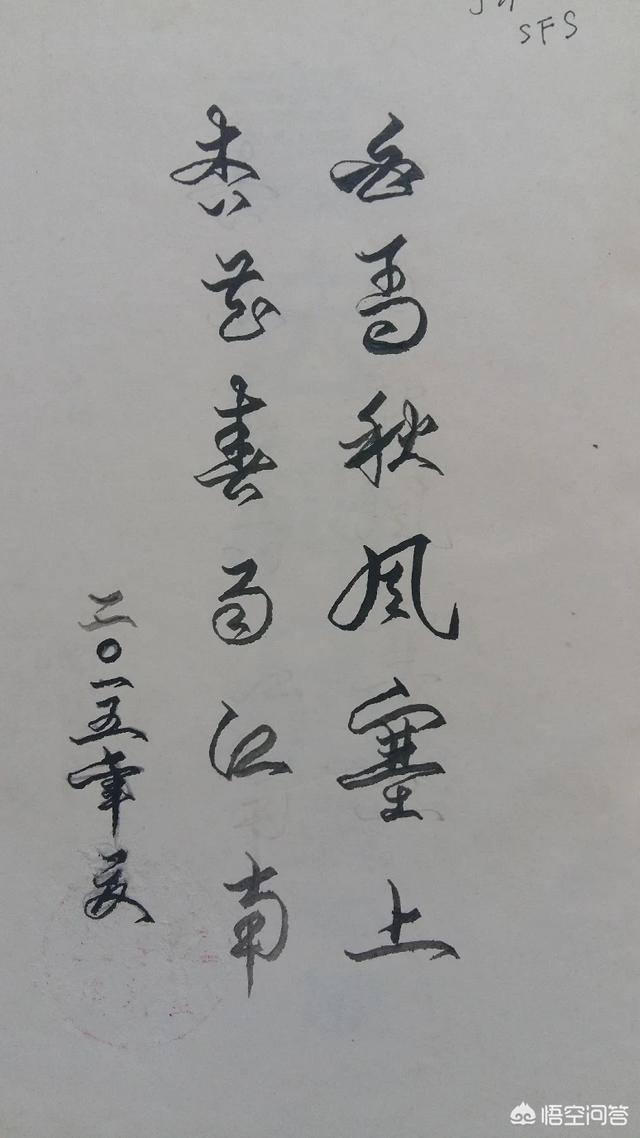 SFS
白馬秋風塞上
杏花春雨江南
二〇一五年夏
悟空问答